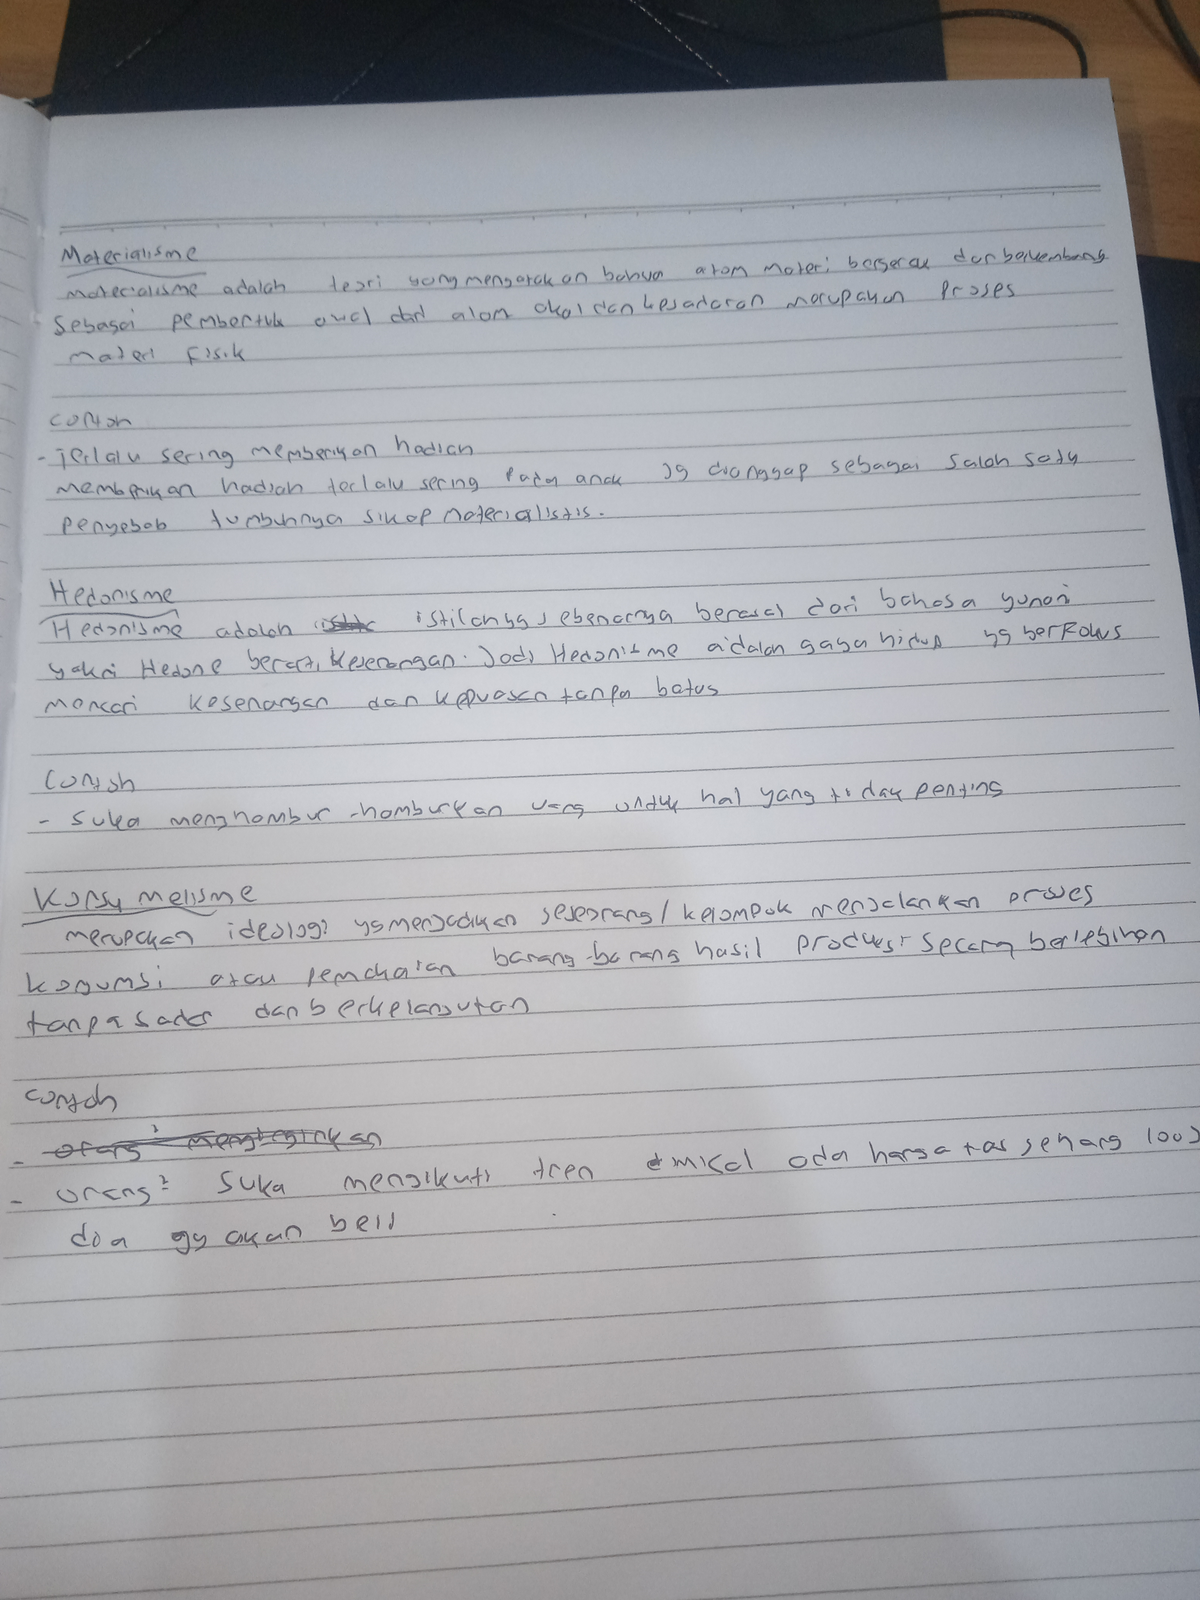 Materialisme
materialisme adalah teori yang mengatakan bahwa atom materi bergerak dan berkembang
sebagai pembentuk awal dari alam akal dan kesadaran merupakan proses
materi fisik
contoh
- Terlalu sering memberikan hadiah
memberikan hadiah terlalu sering pada anak yg dianggap sebagai salah satu
penyebab tumbuhnya sikap materialistis.
Hedonisme
Hedonisme adalah istilahyg sebenarnya berasal dari bahasa yunani
yakni Hedone berarti kesenangan. Jadi Hedonisme adalah gaya hidup yg berfokus
mencari kesenangan dan kepuasan tanpa batas
Contoh
- suka menghambur-hamburkan uang untuk hal yang tidak penting
Konsumelisme
merupakan ideologi yg menjadikan seseorang/kelompok menjalankan proses
konsumsi atau pemakaian barang-barang hasil produksi secara berlebihan
tanpa sadar dan berkelanjutan
contoh
- orang² menginginkan
- orang² suka mengikuti tren misal ada harga tas seharg 100J
dia gy akan beli